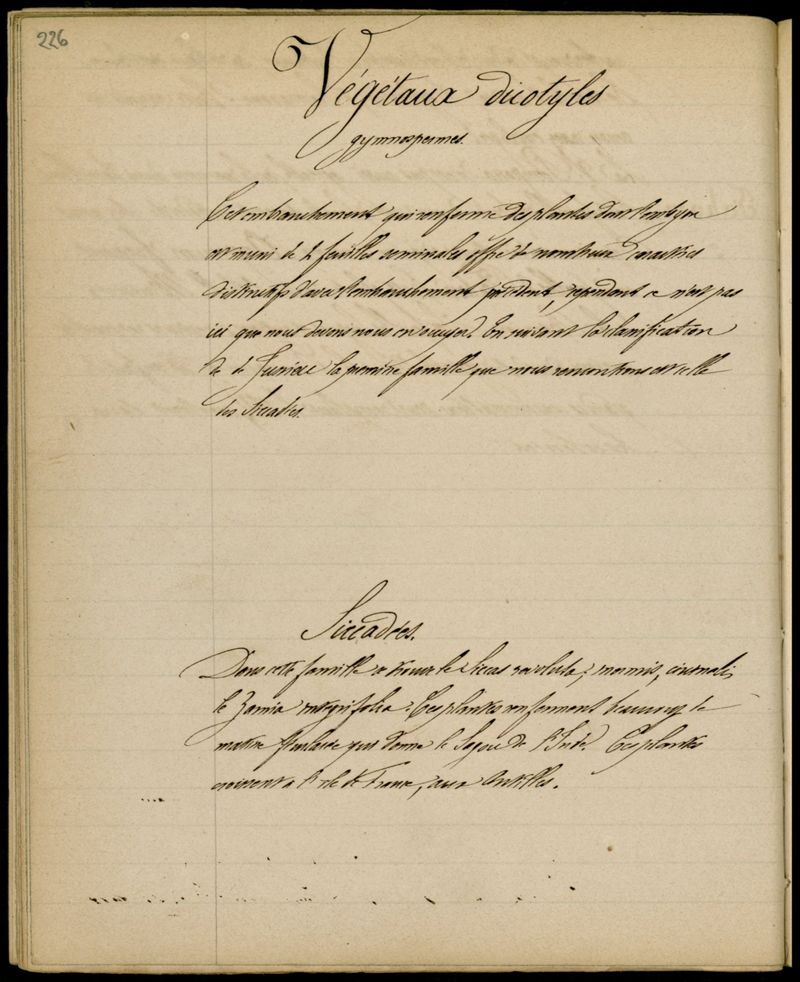 226
Végétaux dicotyles
gymnospermes.
Cet embranchement qui renferme des plantes dont l'embryon
est muni de 2 feuilles séminales offre de nombreux caractères
distinctifs d'avec l'embranchement précédent, cependant ce n'est pas
ici que nous devons nous en occuper. En suivant la classification
de de Jussieu la première famille que nous rencontrons est celle
des Siccadées.
Siccadées.
Dans cette famille se trouve le Siccas revoluta, inermis, circinalis,
le Zamia integrifolia. Ces plantes renferment beaucoup de
matière féculacée qui donne le Sagou de l'Inde. Ces plantes
croissent à l'Ile de France, aux Antilles.